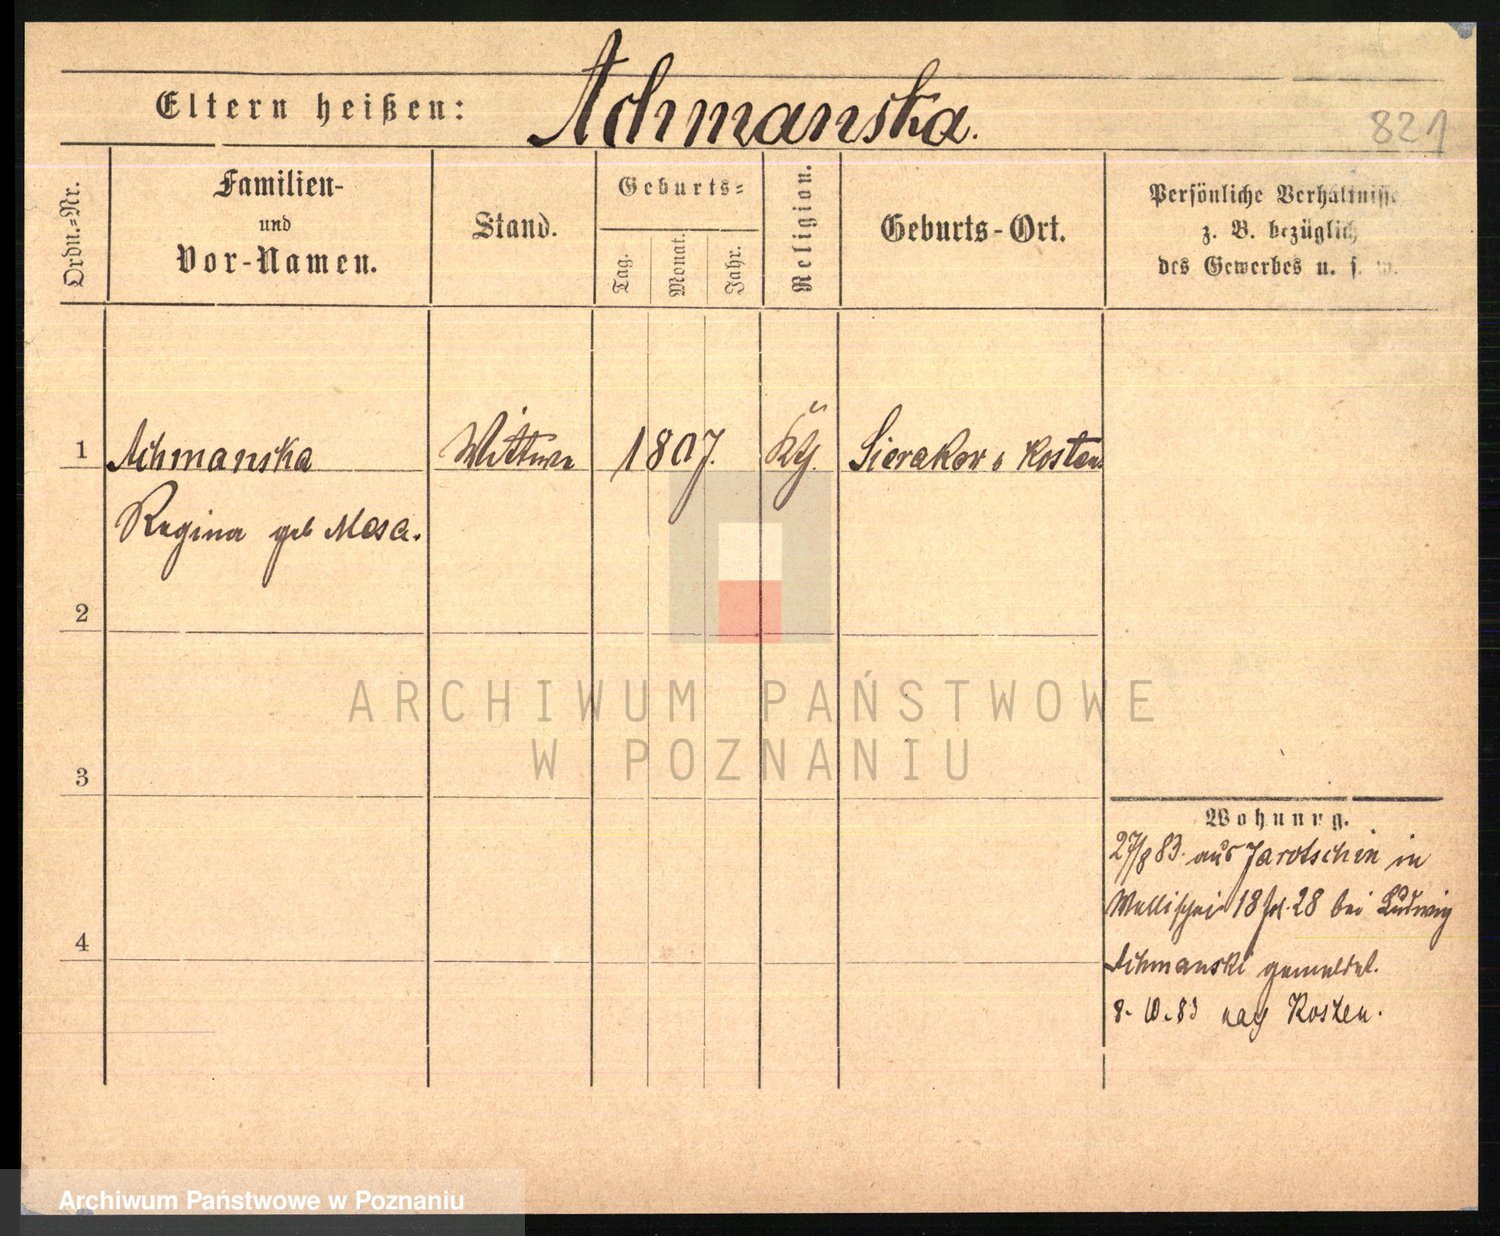 Eltern heißen: Achmanska.
821
Ordn.=Nr.
Familien-
und
Vor-Namen.
Stand.
Geburts=
Tag.
Monat.
Jahr.
Religion.
Geburts-Ort.
Persönliche Verhältnisse
z. B. bezüglich
des Gewerbes u. s. w.
1 Achmanska Wittwe 1807. kth. Sierakow Kosten
Regina geb Mosa.
2
3
4
Wohnung.
27/8 83. aus Jarotschin in
Wallischei 18 bei Ludwig
Achmanski gemeldet.
8. 10. 83 nach Kosten.
ARCHIWUM PAŃSTWOWE
W POZNANIU
Archiwum Państwowe w Poznaniu